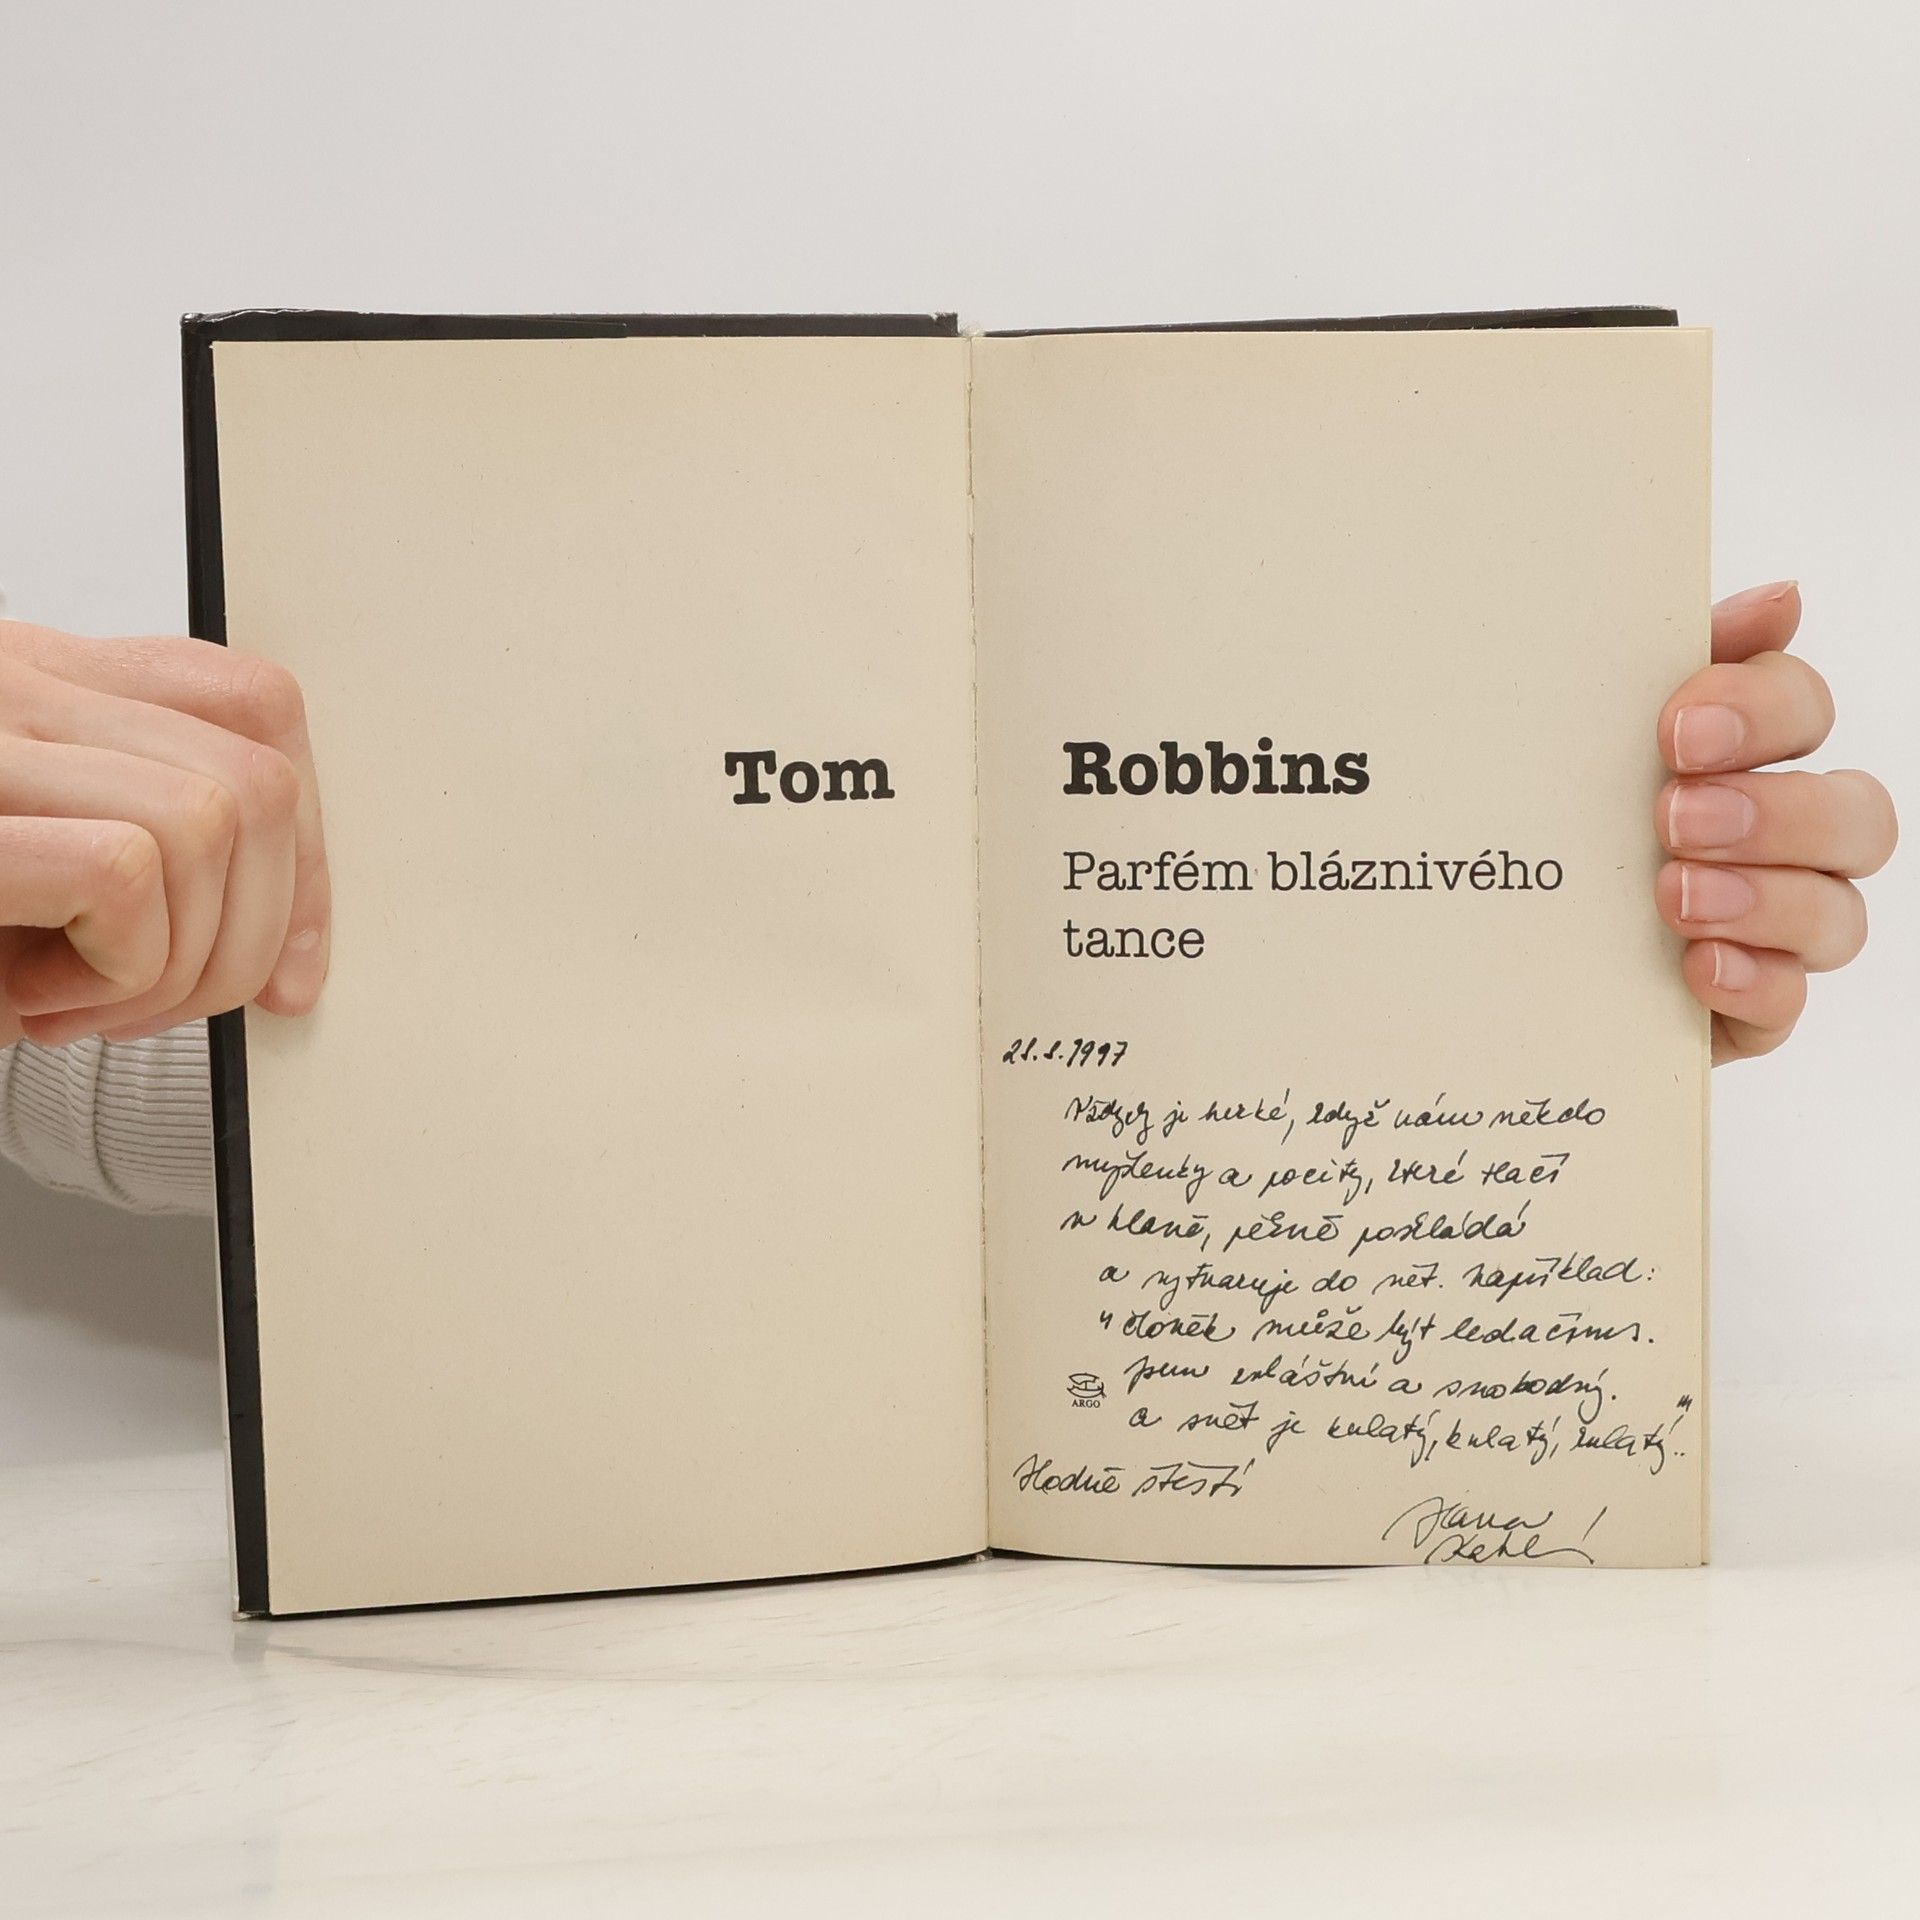 Tom Robbins
Parfém bláznivého
tance
1997
Vždycky je hezké, když nám někdo
myšlenky a pocity, které tlačí
v hlavě, pěkně poskládá
a vytvaruje do vět. Například:
"člověk může být ledačíms.
Jsem zvláštní a svobodný.
a svět je kulatý, kulatý, kulatý.."
ARGO
Hodně štěstí
Hana